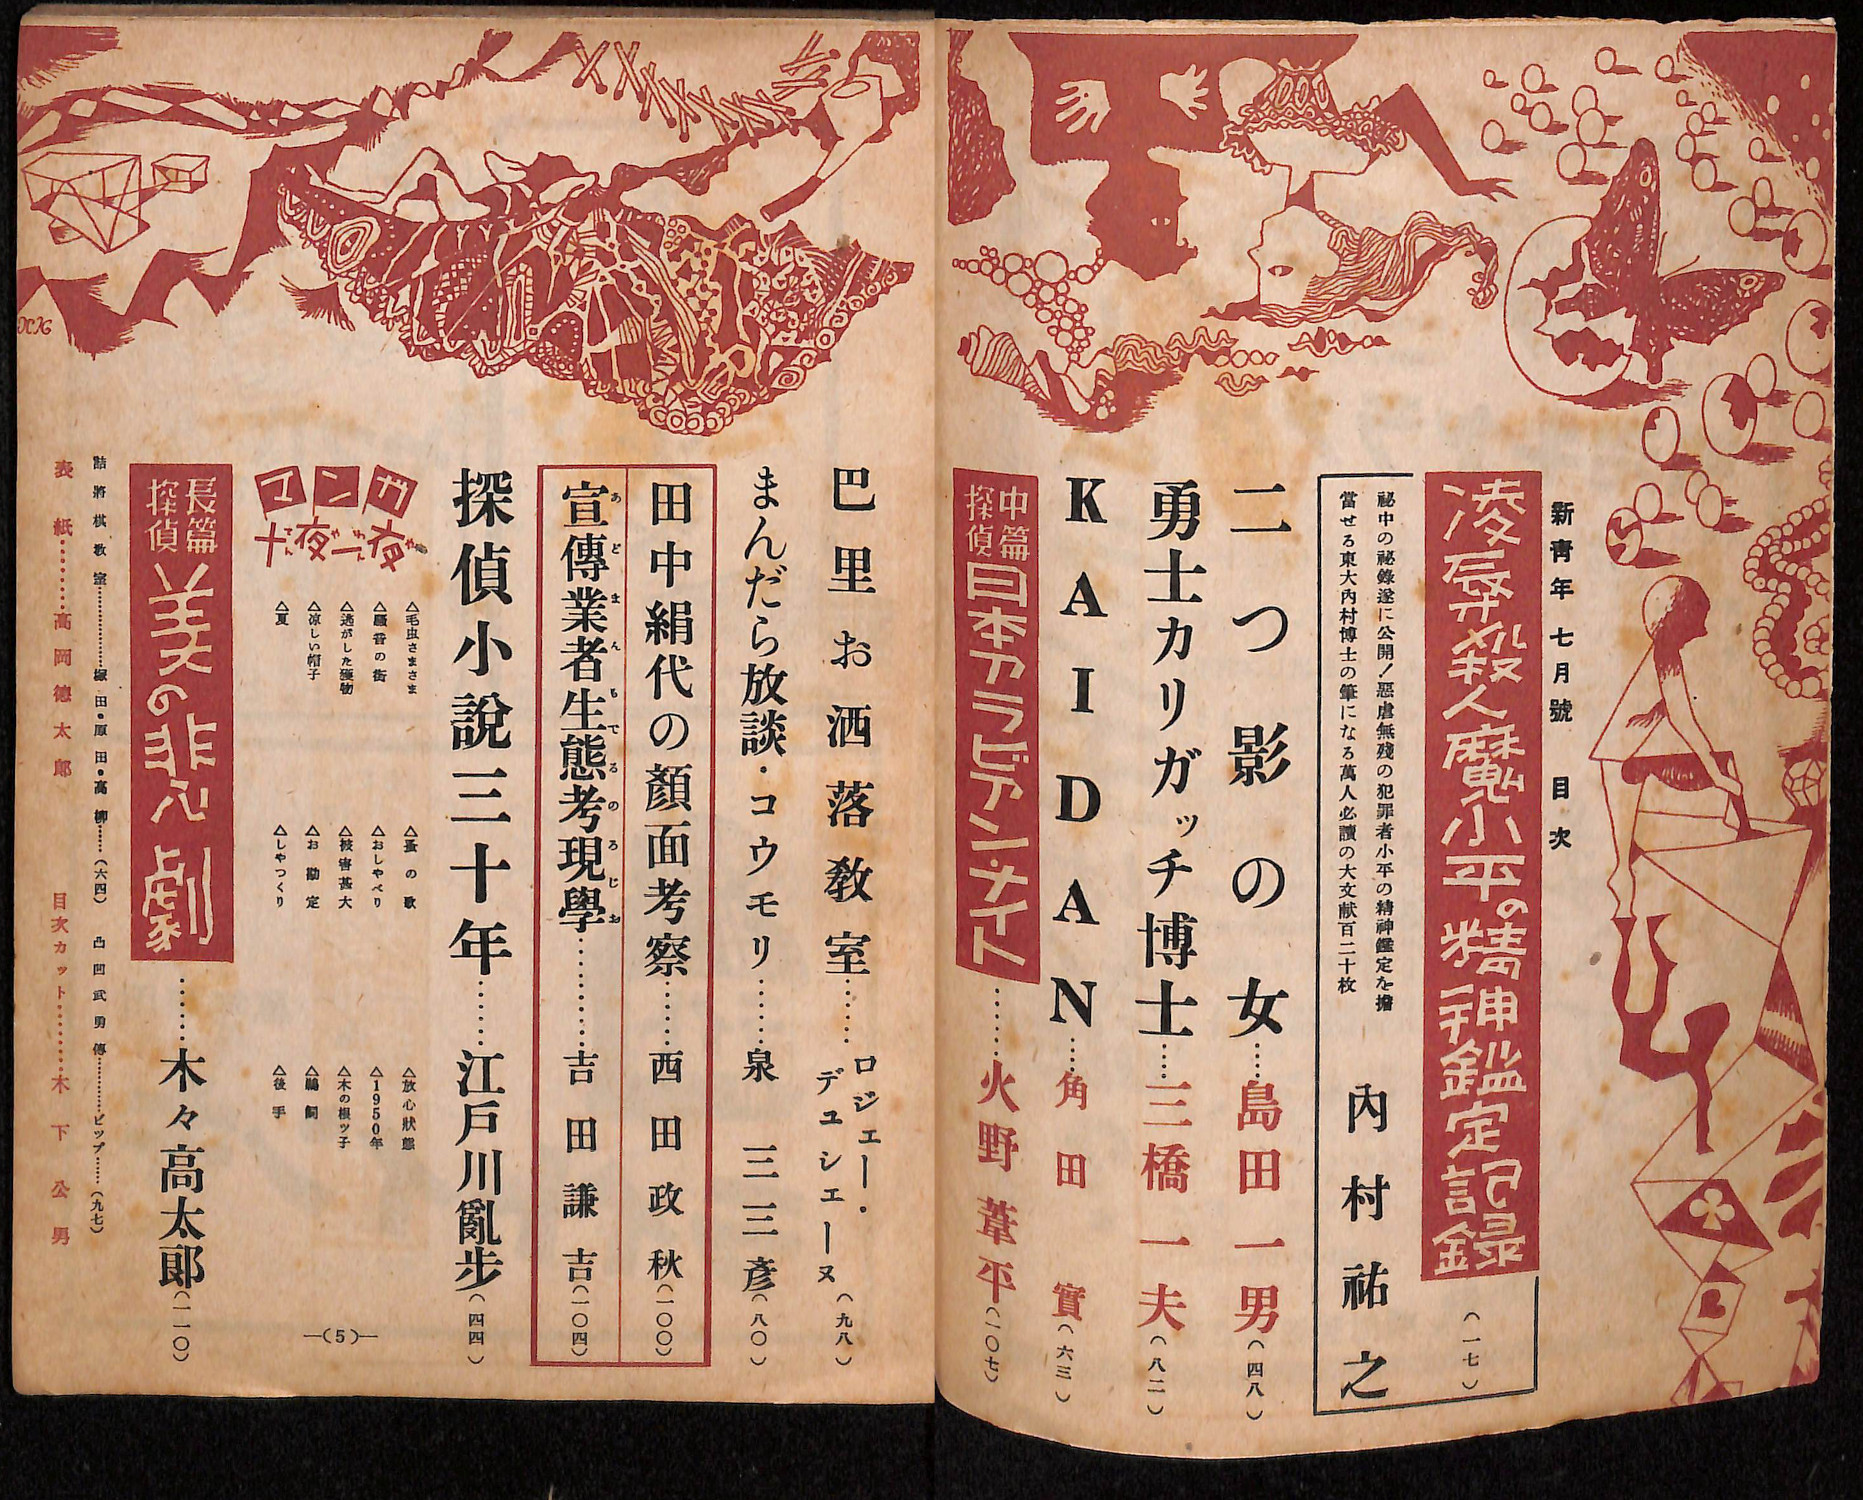 新青年 七月號 目次
凌辱殺人魔小平の精神鑑定記錄
(一七)
祕中の祕錄遂に公開!惡虐無殘の犯罪者小平の精神鑑定を擔
當せる東大內村博士の筆になる萬人必讀の大文献百二十枚
內村祐之
二つ影の女……島田一男(四八)
勇士カリガッチ博士……三橋一夫(八二)
KAIDAN……角田 實(六三)
中篇
探偵
日本アラビアン・ナイト………火野葦平(一〇七)
巴里お洒落敎室……ロジェー・
デュシェーヌ(九八)
まんだら放談・コウモリ……泉 三三彥(八〇)
田中絹代の顏面考察……西田政秋(一〇〇)
宣傳業者生態考現學…………吉田謙吉(一〇四)
あどまんもでるのろじお
探偵小說三十年……江戶川亂步(四四)
マンガ
十夜一夜
△毛虫さまさま
△騷音の街
△逃がした獲物
△涼しい帽子
△夏
△蚤の歌
△おしやべり
△被害甚大
△お勘定
△しやつくり
△放心狀態
△1950年
△木の根ッ子
△鵜飼
△後手
—(5)—
長篇
探偵
美の悲劇……木々高太郞(一一〇)
詰將棋敎室……………塚田・原田・高柳……(六四)
凸凹武勇傳……………ビップ……(九七)
表紙………高岡德太郞
目次カット………木下公男